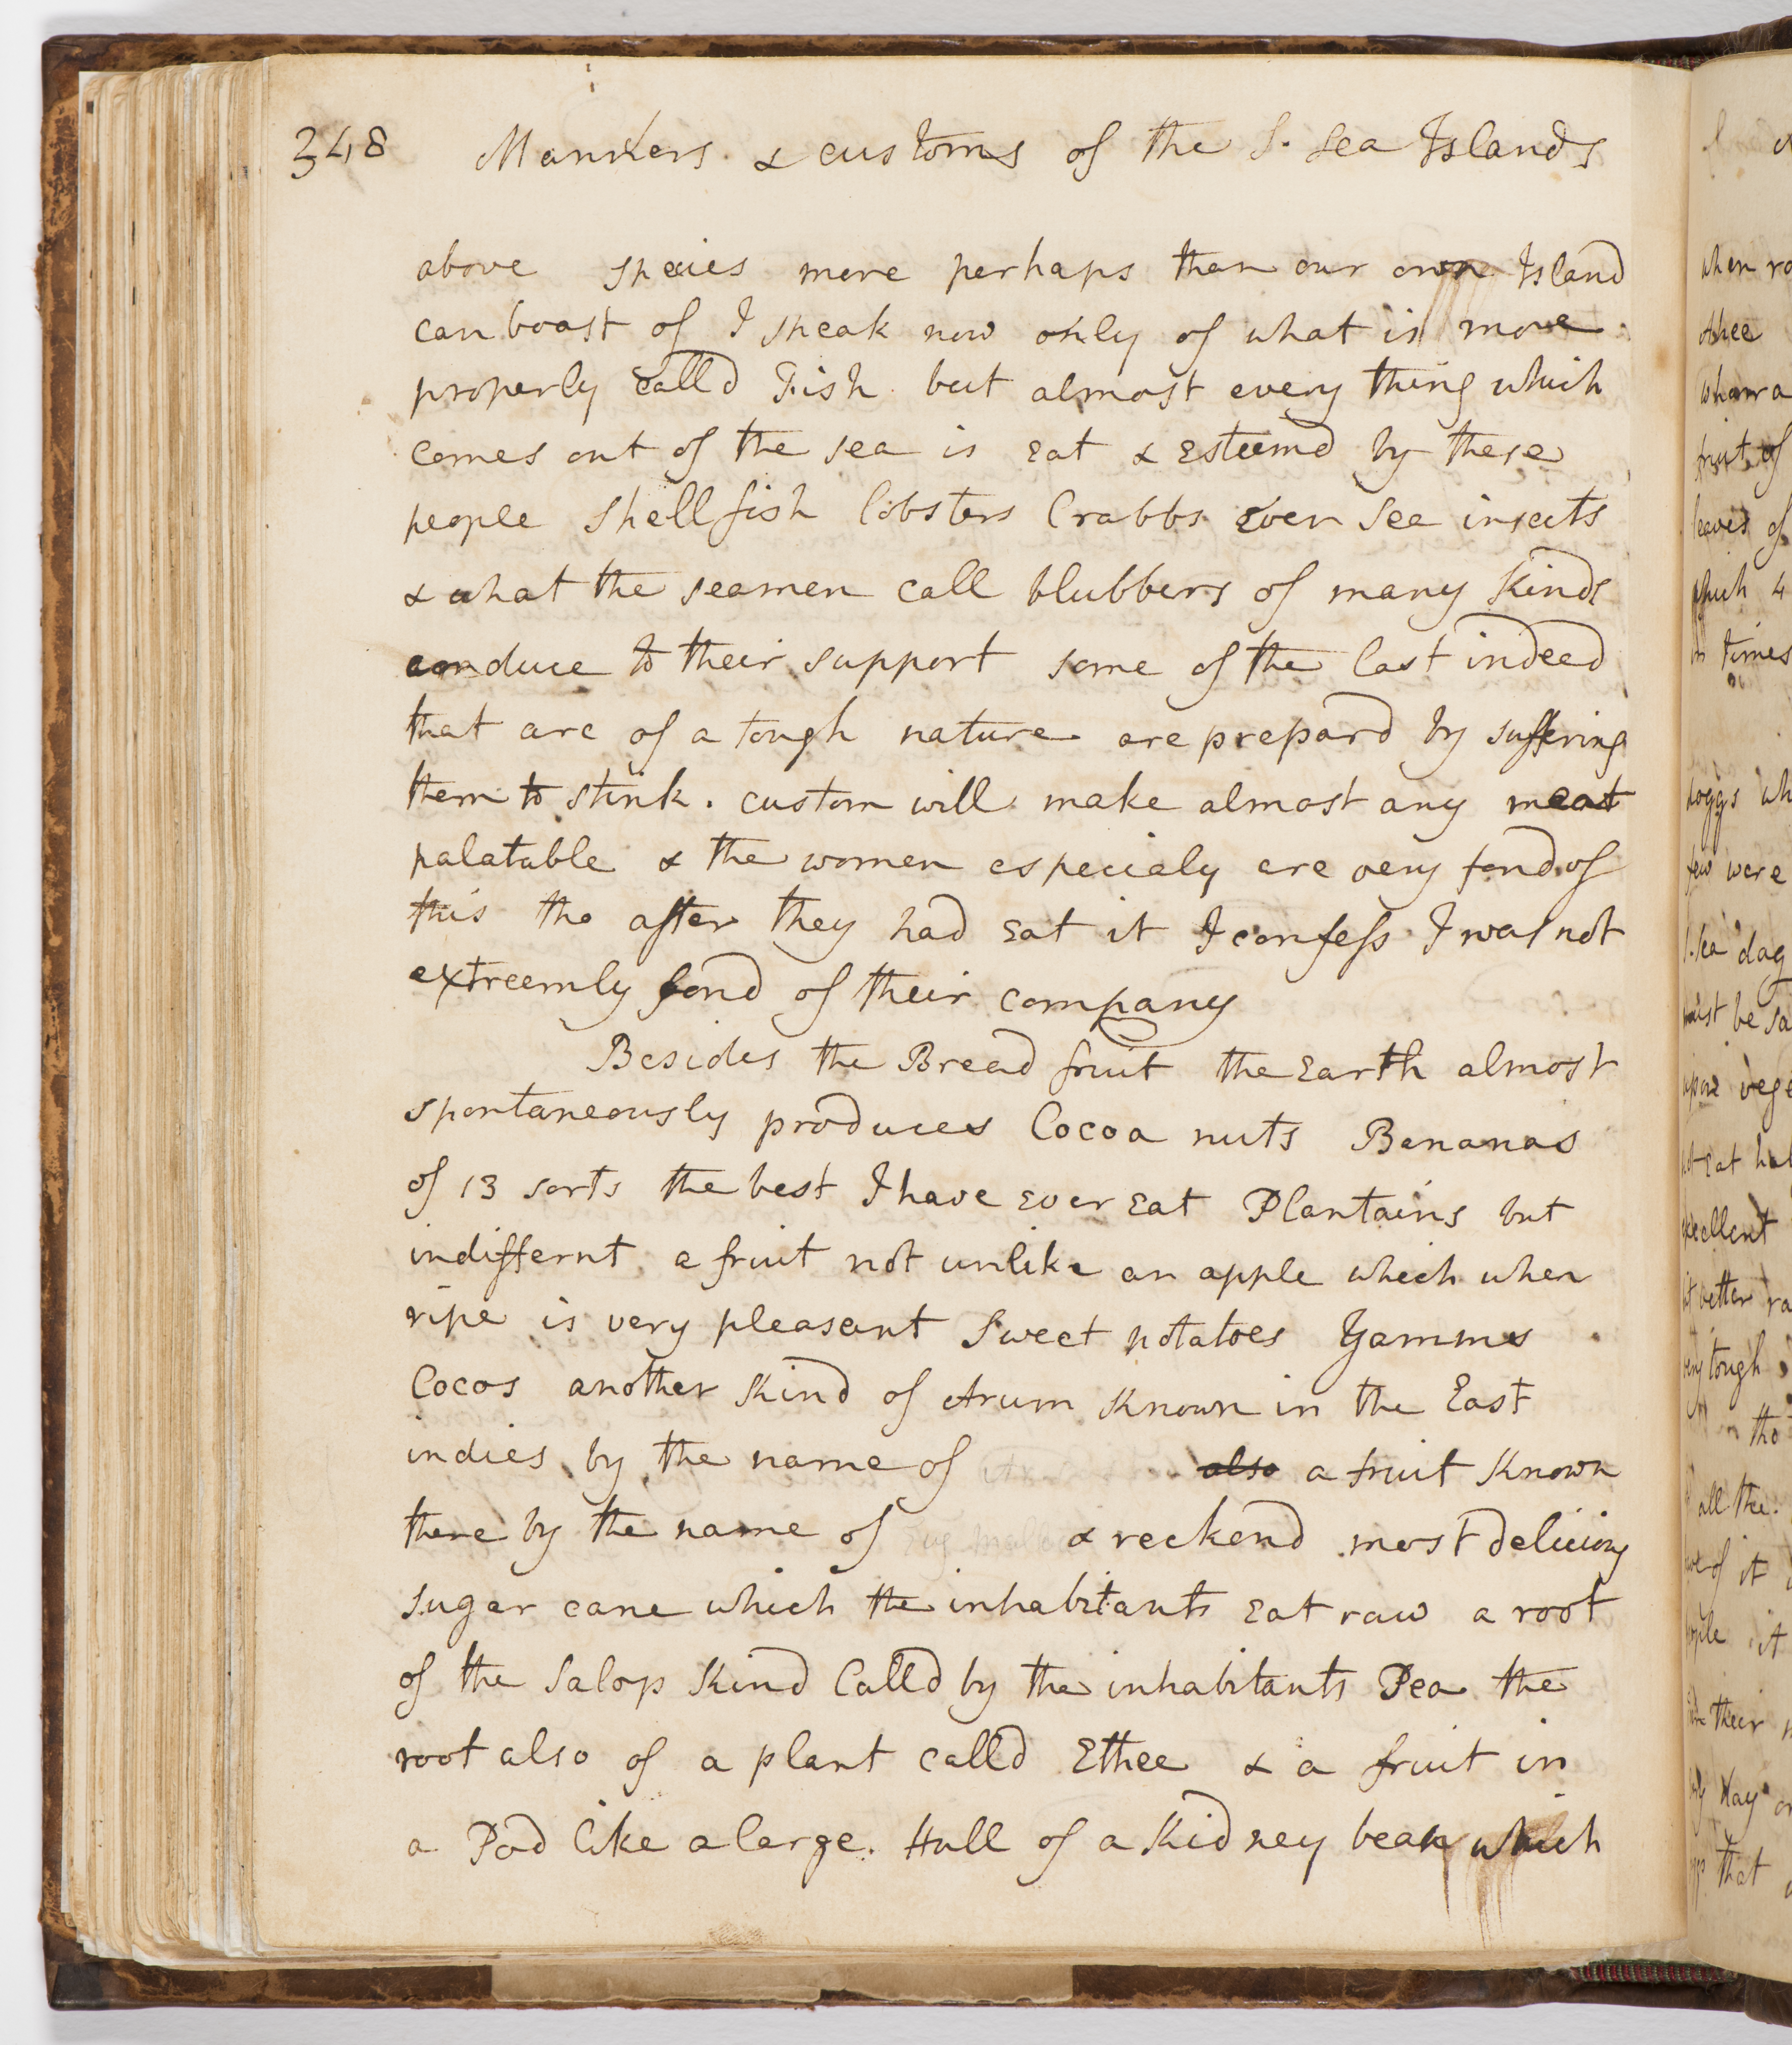 348 Manners & customs of the S. Sea Islands
above species more perhaps than our own Island
can boast of I speak now only of what is more
properly calld Fish but almost every thing which
comes out of the sea is eat & esteemd by these
people Shell fish lobsters Crabbs even Sea insects
& what the seamen call blubbers of many kinds
conduce to their support some of the last indeed
that are of a tough nature are prepard by suffering
them to stink. custom will make almost any meat
palatable & the women especialy are very fond of
this tho after they had eat it I confess I was not
extreemly fond of their company
Besides the Bread fruit the Earth almost
spontaneously produces Cocoa nuts Bananas
of 13 sorts the best I have ever eat Plantains but
indiffernt a fruit not unlike an apple which when
ripe is very pleasant Sweet potatoes Yamms
Cocos another kind of Arum known in the East
indies by the name of also a fruit known
there by the name of Eug & reckend most delicious
sugar cane which the inhabitants eat raw a root
of the Salop kind Calld by the inhabitants Pea the
root also of a plant calld Ethee & a fruit in
a Pod like a large Hull of a Kidney bean which
when
Ahee
fruit of
leaves of
times
hoggs
few were
S. Sea dog
must be
upon
eat
excellent
better
very tough
tho
all the
of it
it
their
that